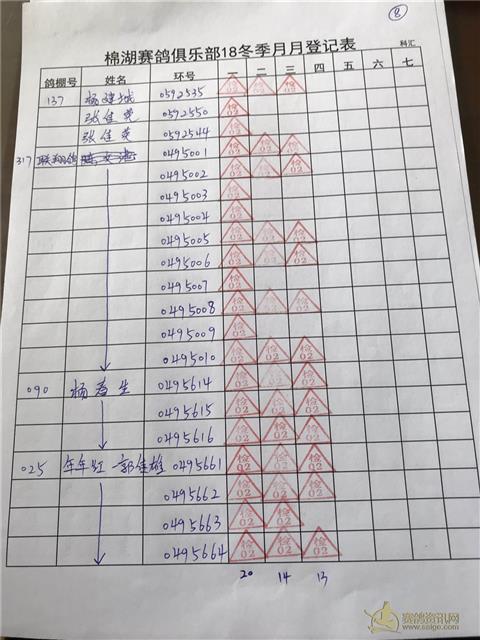 ⑧
棉湖赛鸽俱乐部18冬季月月登记表
科汇
鸽棚号 姓名 环号 一 二 三 四 五 六 七
137 杨建城 0592535 检02 检02 检02
张佳荣 0592550 检02
张佳荣 0592544 检02
317 联翔鸽 0495001 检02 检02 检02
0495002 检02 检02 检02
0495003 检02
0495004 检02
0495005 检02 检02 检02
0495006 检02 检02 检02
0495007 检02
0495008 检02 检02 检02
0495009 检02
0495010 检02 检02 检02
090 杨春生 0495614 检02 检02 检02
0495615 检02 检02 检02
0495616 检02 检02 检02
025 年年红 郭佳雄 0495661 检02 检02 检02
0495662 检02 检02 检02
0495663 检02 检02
0495664 检02 检02 检02
20 14 13
赛鸽资讯网
www.saige.com